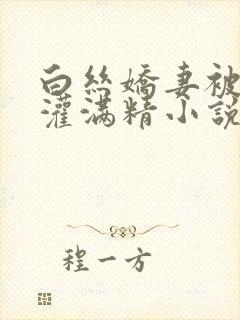 白絲嬌妻被
灌滿精小說
程一方